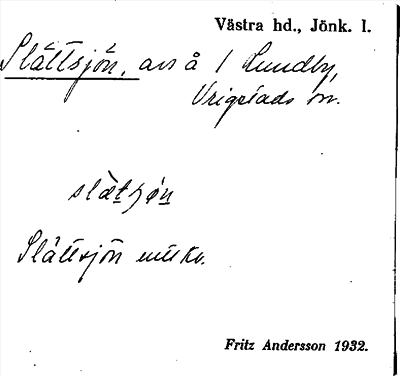 Västra hd., Jönk. l.
Slättsjön, avs å 1 Lundby,
Vrigstads sn.
Slättsjön utt kv.
Fritz Andersson 1932.